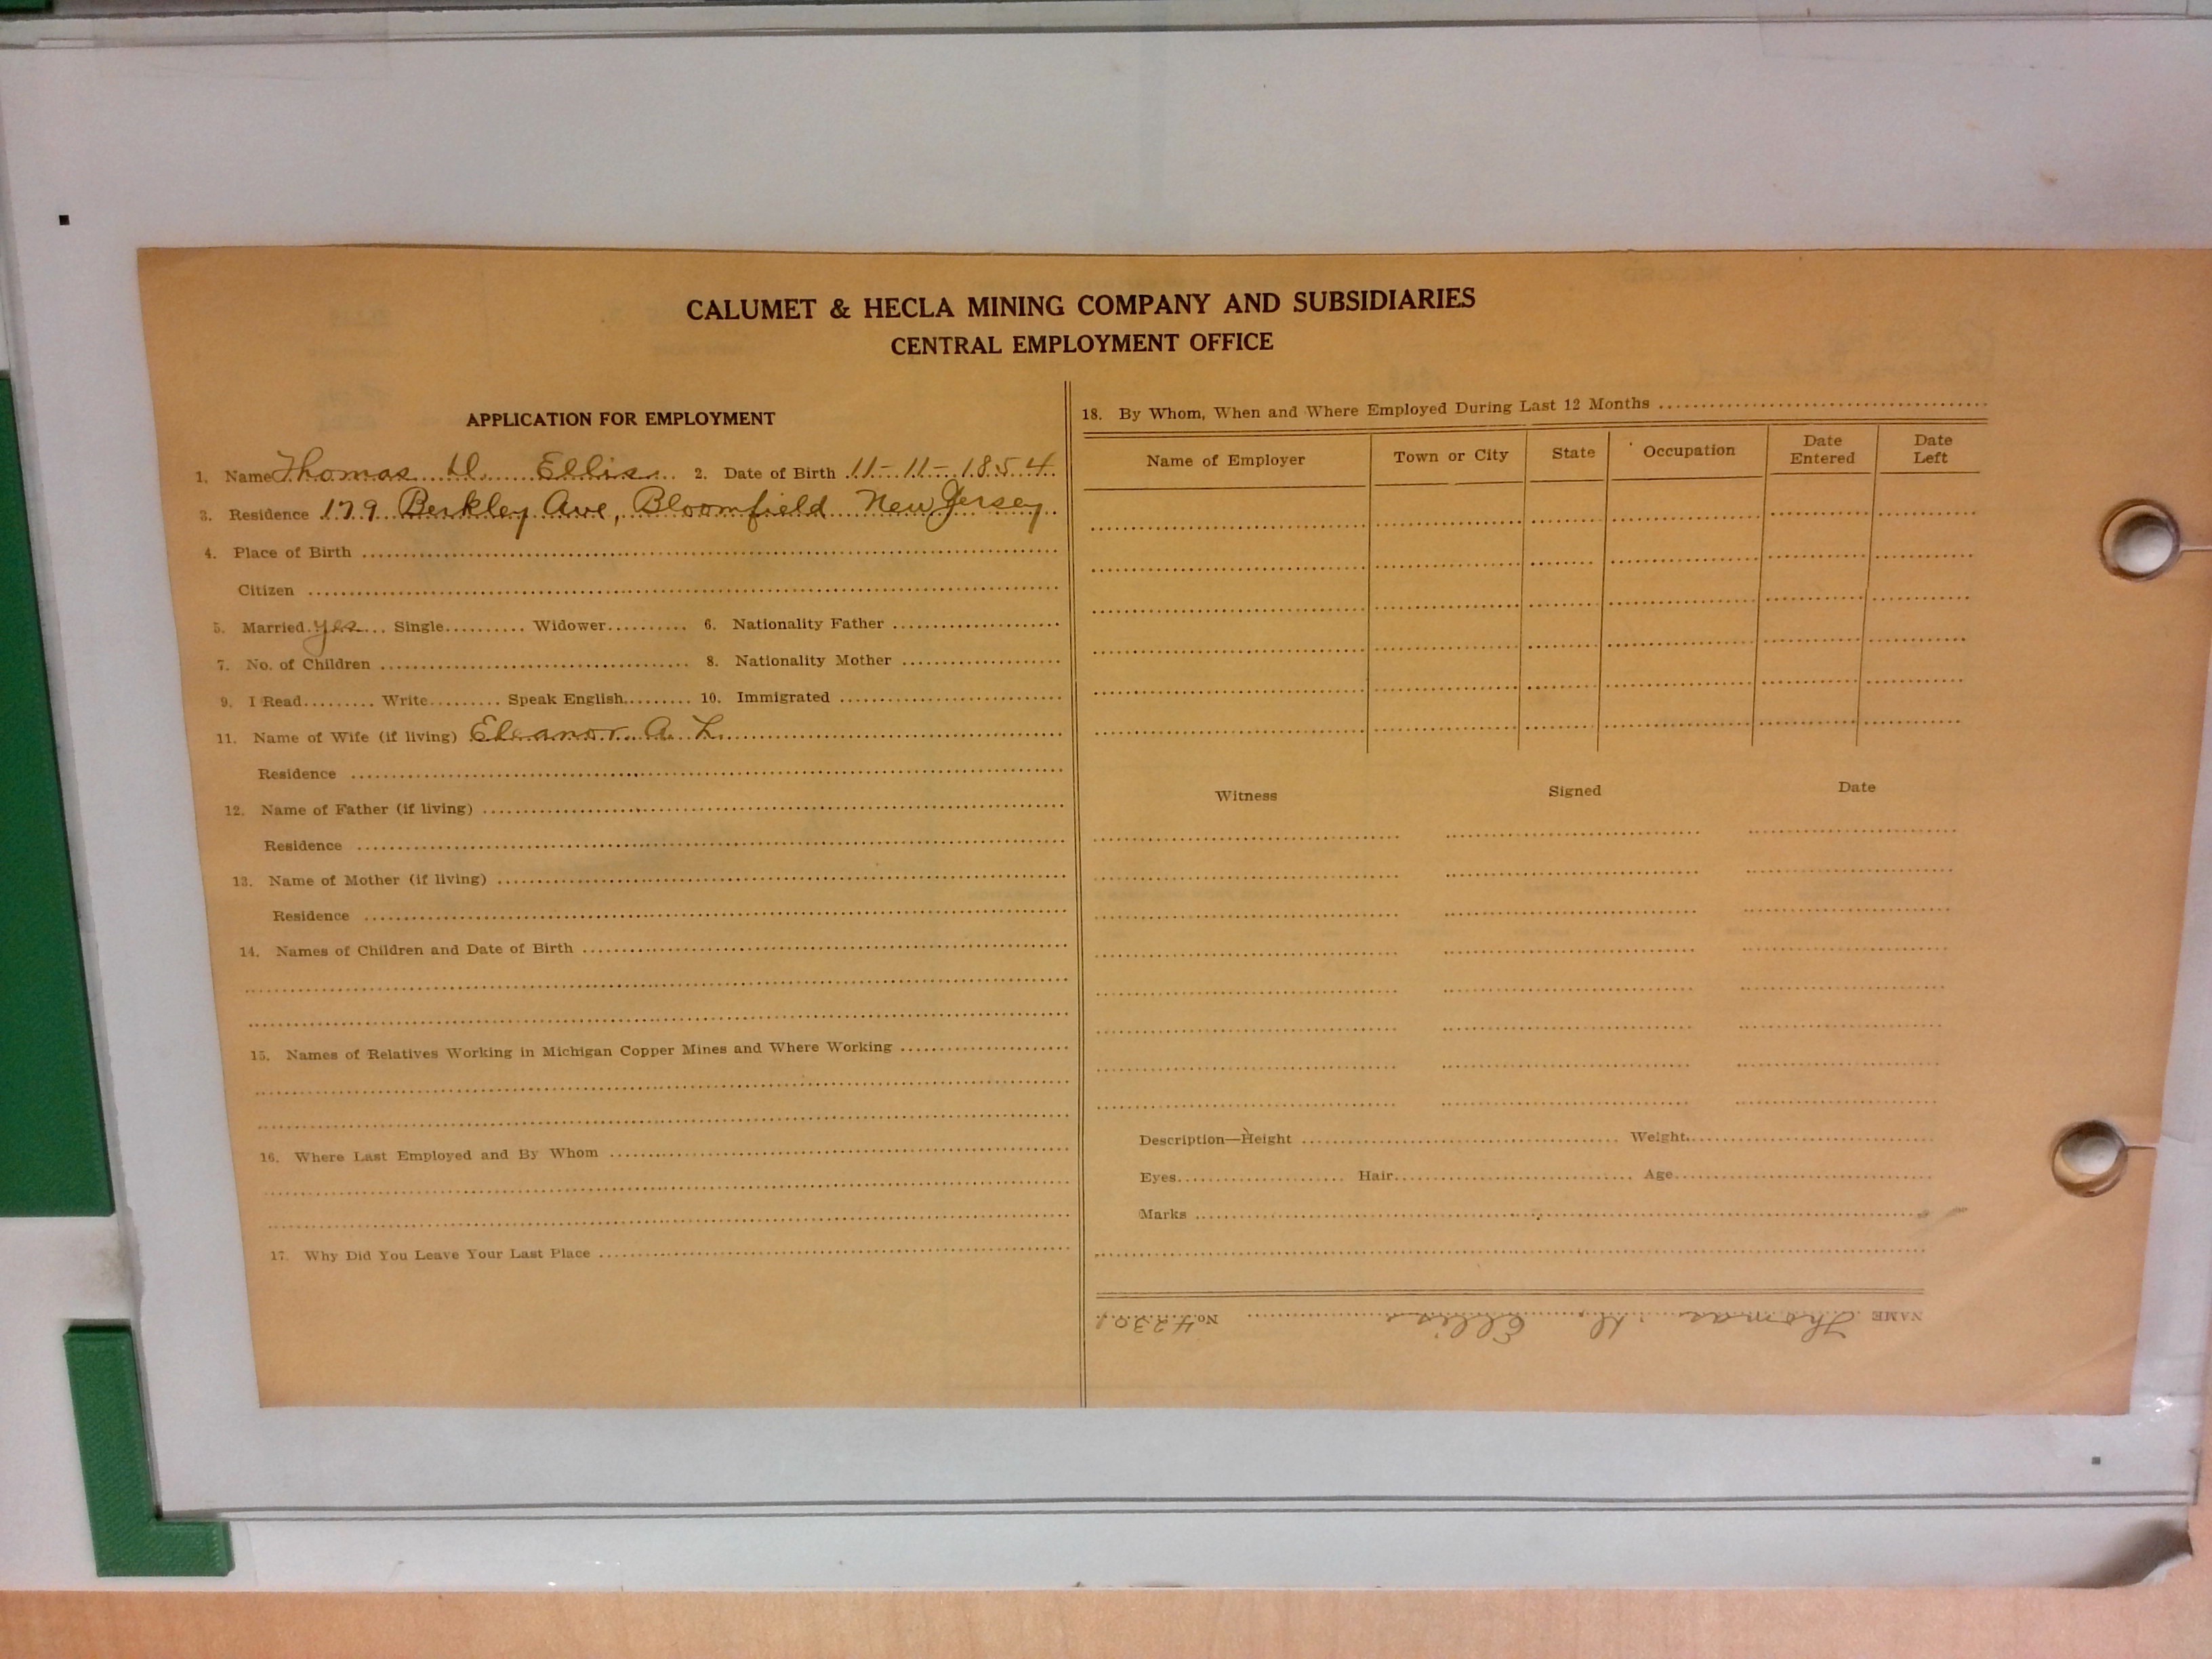 CALUMET & HECLA MINING COMPANY AND SUBSIDIARIES
CENTRAL EMPLOYMENT OFFICE
APPLICATION FOR EMPLOYMENT
1. Name Thomas H. Ellis 2. Date of Birth 11-11-1854
3. Residence 179 Berkley Ave, Bloomfield New Jersey
4. Place of Birth
Citizen
5. Married yes Single Widower 6. Nationality Father
7. No. of Children 8. Nationality Mother
9. I Read Write Speak English 10. Immigrated
11. Name of Wife (if living) Eleanor A. L.
Residence
12. Name of Father (if living)
Residence
13. Name of Mother (if living)
Residence
14. Names of Children and Date of Birth
15. Names of Relatives Working in Michigan Copper Mines and Where Working
16. Where Last Employed and By Whom
17. Why Did You Leave Your Last Place
18. By Whom, When and Where Employed During Last 12 Months
Name of Employer Town or City State Occupation Date Entered Date Left
Witness Signed Date
Description—Height Weight
Eyes Hair Age
Marks
NAME Thomas H. Ellis No. 42301